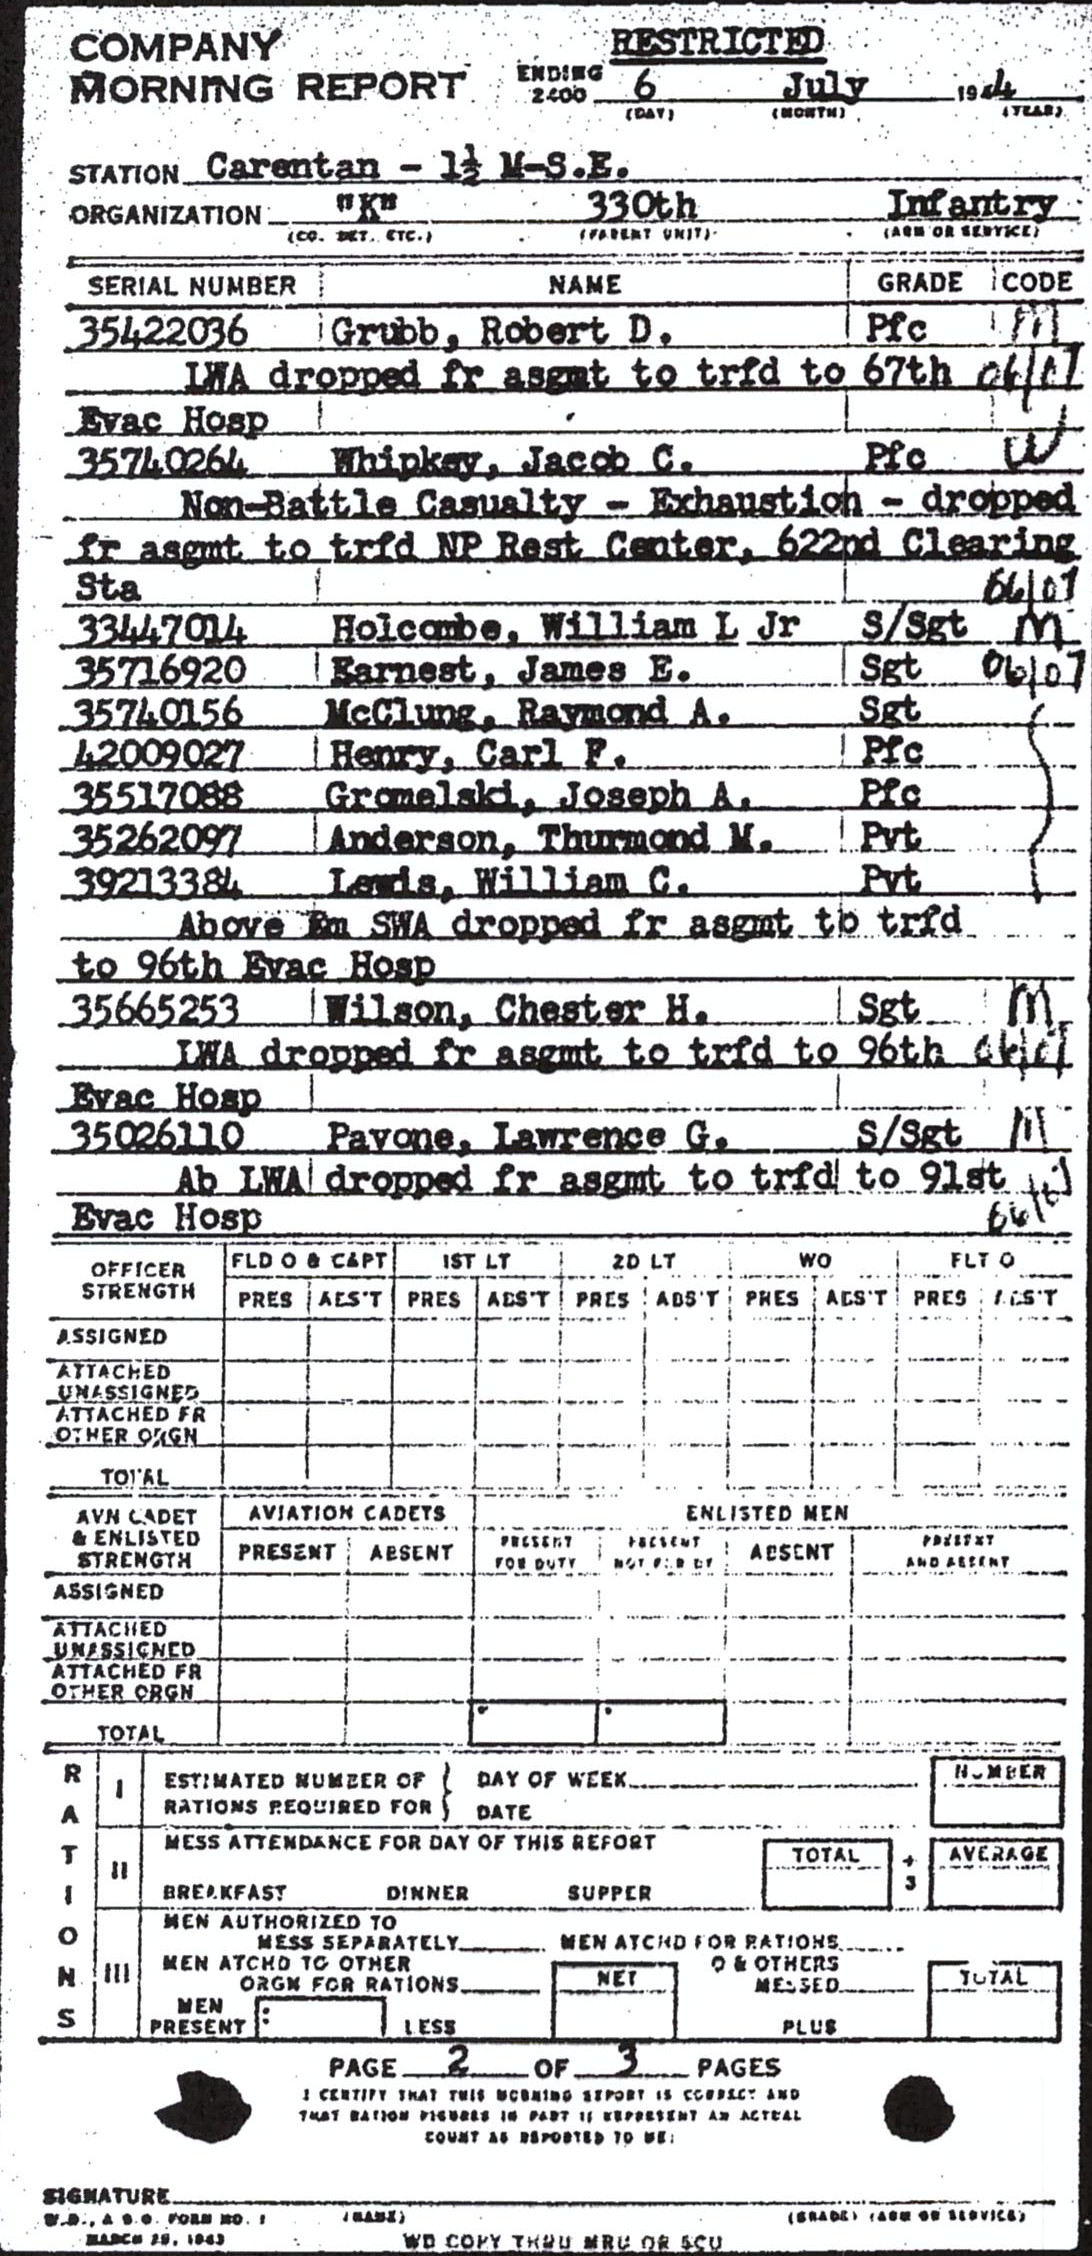 COMPANY
MORNING REPORT
RESTRICTED
ENDING
2400 6 July 1944
(DAY) (MONTH) (YEAR)
STATION Carentan - 1½ M-S.E.
ORGANIZATION "K" 330th Infantry
(CO. DET. ETC.) (PARENT UNIT) (ARM OR SERVICE)
SERIAL NUMBER NAME GRADE CODE
35422036 Grubb, Robert D. Pfc M
LWA dropped fr asgmt to trfd to 67th 06/07
Evac Hosp
35740264 Whipkey, Jacob C. Pfc W
Non-Battle Casualty - Exhaustion - dropped
fr asgmt to trfd NP Rest Center, 622nd Clearing
Sta 06/07
33447014 Holcombe, William L Jr S/Sgt M
35716920 Earnest, James E. Sgt 06/07
35740156 McClung, Raymond A. Sgt
42009027 Henry, Carl F. Pfc
35517088 Gromelski, Joseph A. Pfc
35262097 Anderson, Thurmond M. Pvt
39213384 Lewis, William C. Pvt
Above Em SWA dropped fr asgmt to trfd
to 96th Evac Hosp
35665253 Wilson, Chester H. Sgt M
LWA dropped fr asgmt to trfd to 96th 06/07
Evac Hosp
35026110 Pavone, Lawrence G. S/Sgt M
Ab LWA dropped fr asgmt to trfd to 91st
Evac Hosp
OFFICER
STRENGTH
FLD O & CAPT 1ST LT 2D LT WO FLT O
PRES ABS'T PRES ABS'T PRES ABS'T PRES ABS'T PRES ABS'T
ASSIGNED
ATTACHED
UNASSIGNED
ATTACHED FR
OTHER ORGN
TOTAL
AVN CADET
& ENLISTED
STRENGTH
AVIATION CADETS ENLISTED MEN
PRESENT ABSENT PRESENT
FOR DUTY PRESENT
NOT FOR DY ABSENT PRESENT
AND ABSENT
ASSIGNED
ATTACHED
UNASSIGNED
ATTACHED FR
OTHER ORGN
TOTAL
RATIONS
I ESTIMATED NUMBER OF DAY OF WEEK NUMBER
RATIONS REQUIRED FOR DATE
II MESS ATTENDANCE FOR DAY OF THIS REPORT
TOTAL ÷ 3 AVERAGE
BREAKFAST DINNER SUPPER
III MEN AUTHORIZED TO
MESS SEPARATELY MEN ATCHD FOR RATIONS
MEN ATCHD TO OTHER
ORGN FOR RATIONS NET O & OTHERS
MESSED TOTAL
MEN
PRESENT LESS PLUS
PAGE 2 OF 3 PAGES
I CERTIFY THAT THIS MORNING REPORT IS CORRECT AND
THAT RATION FIGURES IN PART II REPRESENT AN ACTUAL
COUNT AS REPORTED TO ME:
SIGNATURE
W.D., A.G.O. FORM NO. 1 (NAME) (GRADE) (ARM OR SERVICE)
MARCH 29, 1943
WD COPY THRU MRU OR SCU